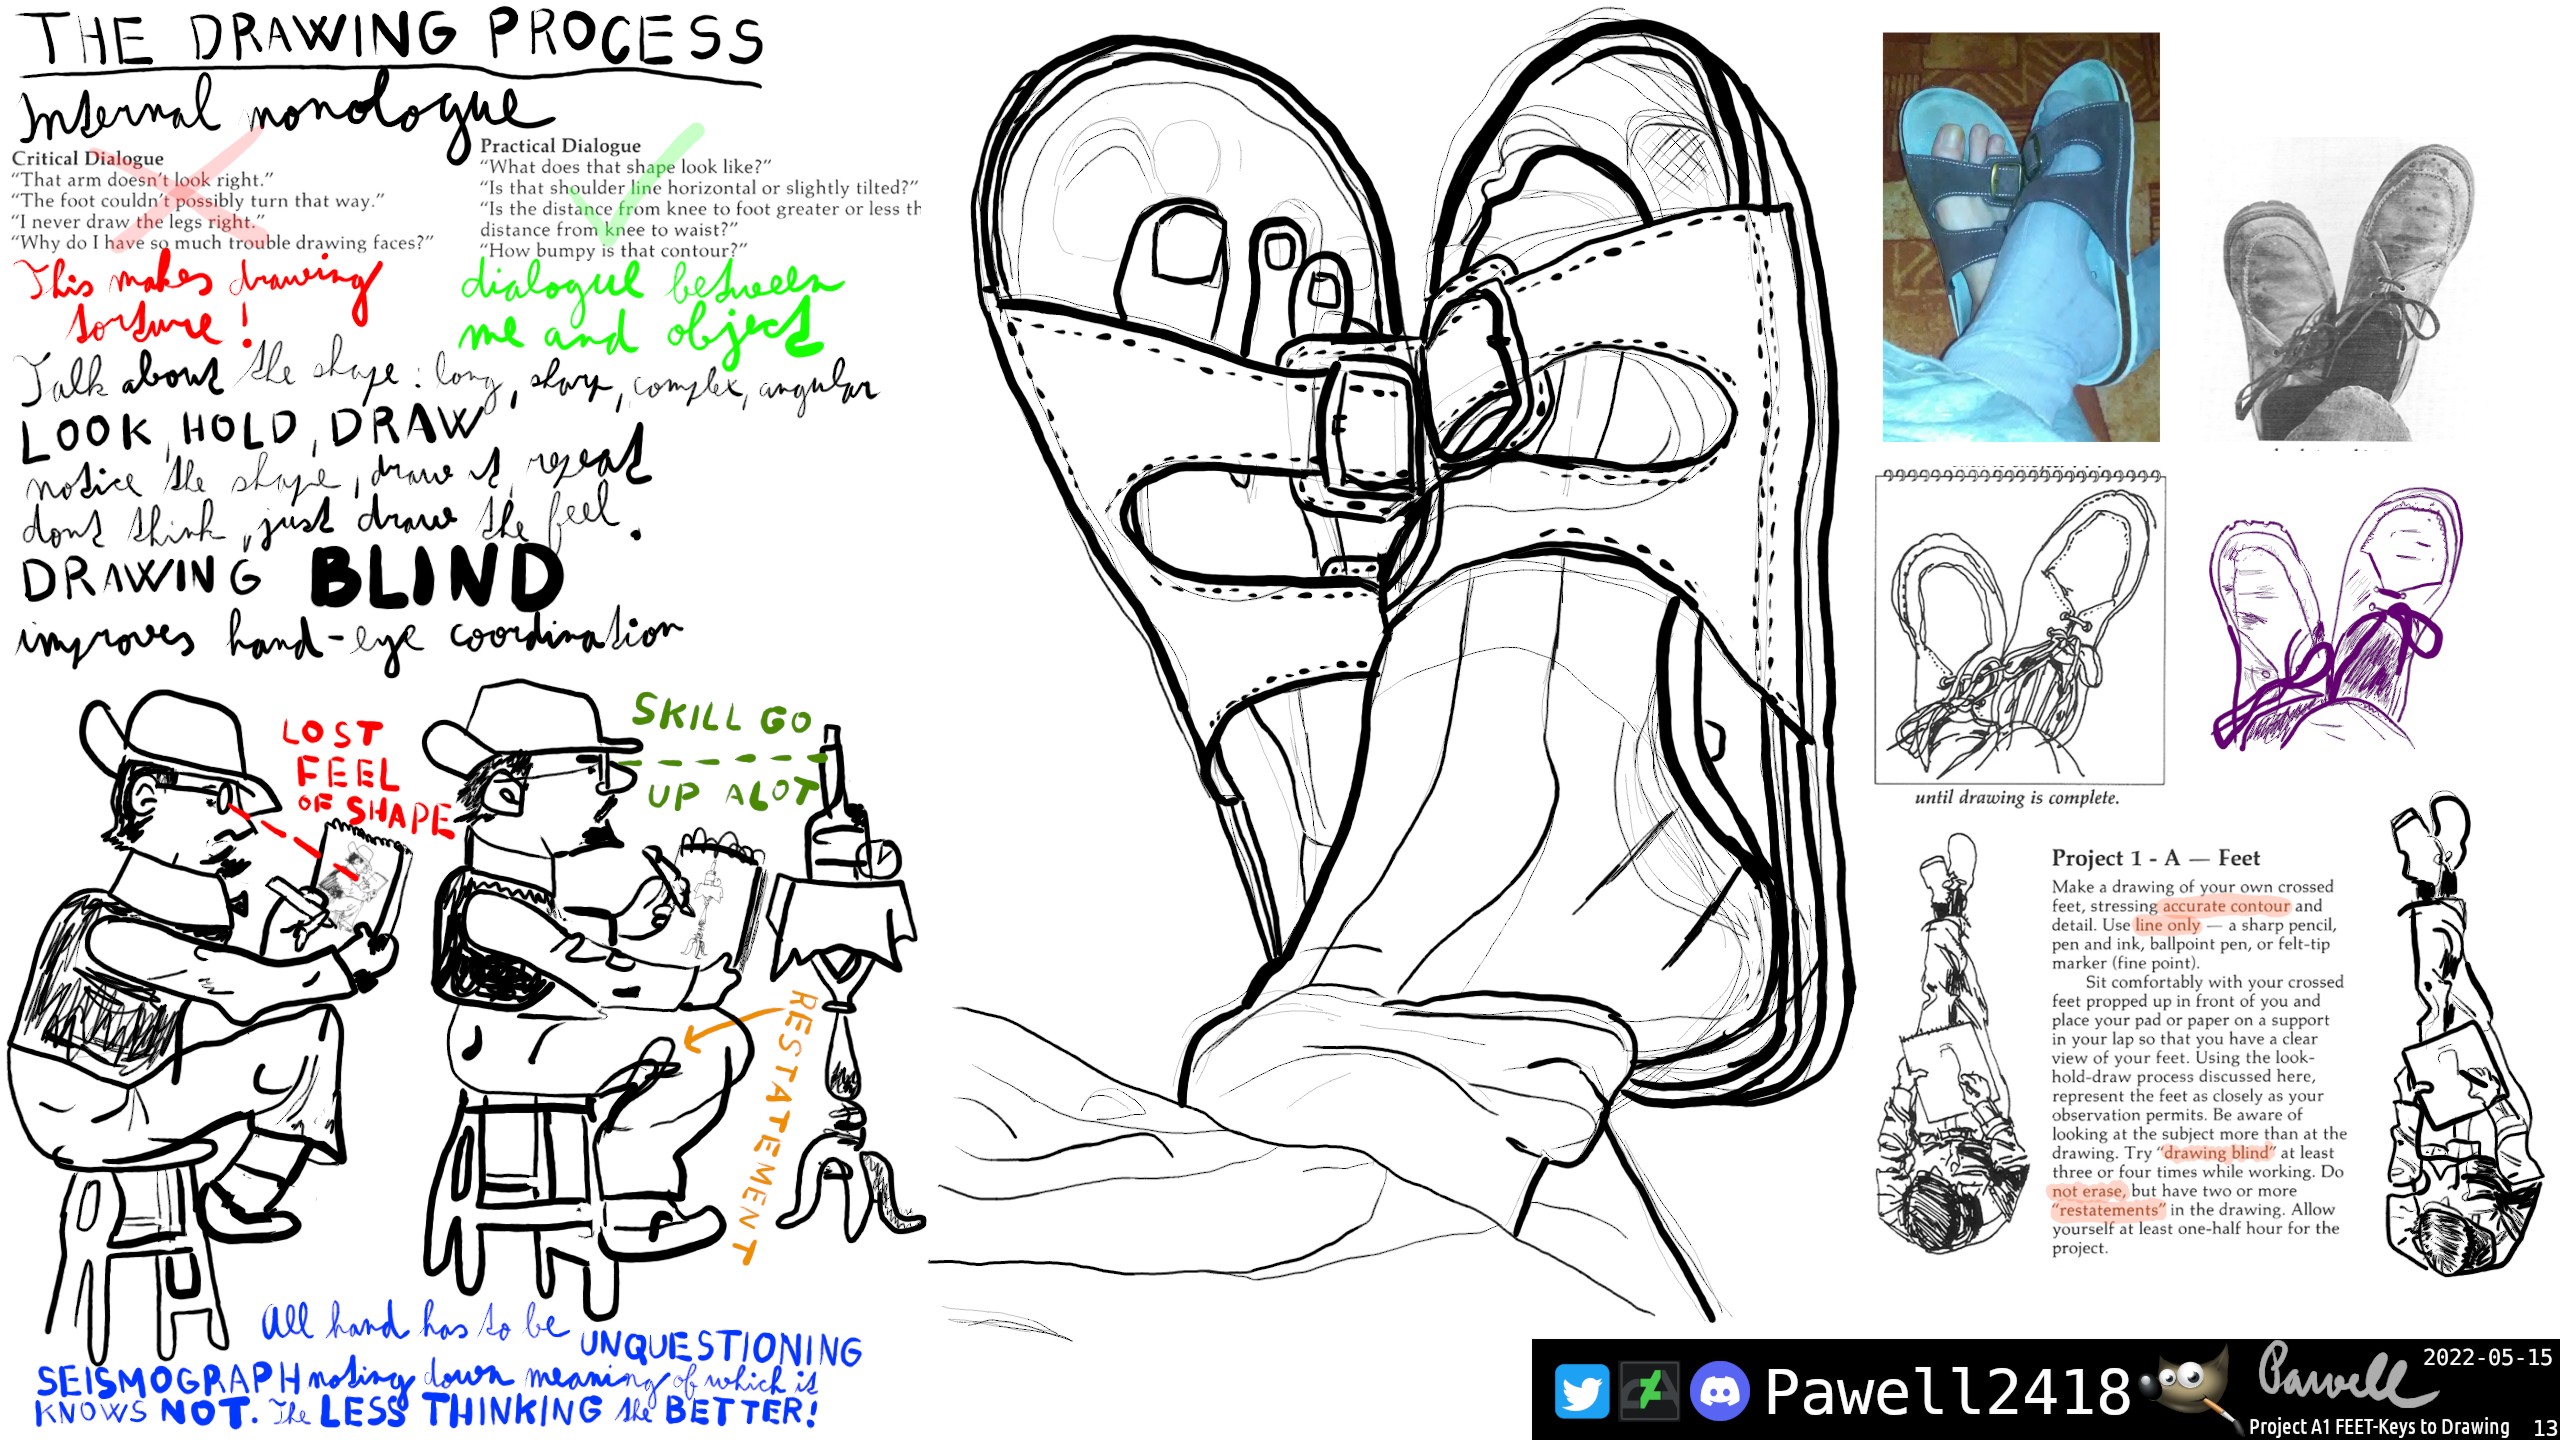 THE DRAWING PROCESS
Internal monologue
Critical Dialogue
"That arm doesn't look right."
"The foot couldn't possibly turn that way."
"I never draw the legs right."
"Why do I have so much trouble drawing faces?"
This makes drawing
torture!
Practical Dialogue
"What does that shape look like?"
"Is that shoulder line horizontal or slightly tilted?"
"Is the distance from knee to foot greater or less th
distance from knee to waist?"
"How bumpy is that contour?"
dialogue between
me and object
Talk about the shape: long, sharp, complex, angular
LOOK, HOLD, DRAW
notice the shape, draw it, repeat
dont think, just draw the feel.
DRAWING BLIND
improves hand-eye coordination
LOST
FEEL
OF SHAPE
SKILL GO
UP ALOT
RESTATEMENT
All hand has to be UNQUESTIONING
SEISMOGRAPH noting down meaning of which it
KNOWS NOT. The LESS THINKING the BETTER!
until drawing is complete.
Project 1 - A — Feet
Make a drawing of your own crossed
feet, stressing accurate contour and
detail. Use line only — a sharp pencil,
pen and ink, ballpoint pen, or felt-tip
marker (fine point).
Sit comfortably with your crossed
feet propped up in front of you and
place your pad or paper on a support
in your lap so that you have a clear
view of your feet. Using the look-
hold-draw process discussed here,
represent the feet as closely as your
observation permits. Be aware of
looking at the subject more than at the
drawing. Try "drawing blind" at least
three or four times while working. Do
not erase, but have two or more
"restatements" in the drawing. Allow
yourself at least one-half hour for the
project.
Pawell2418
Pawell
2022-05-15
Project A1 FEET-Keys to Drawing
13